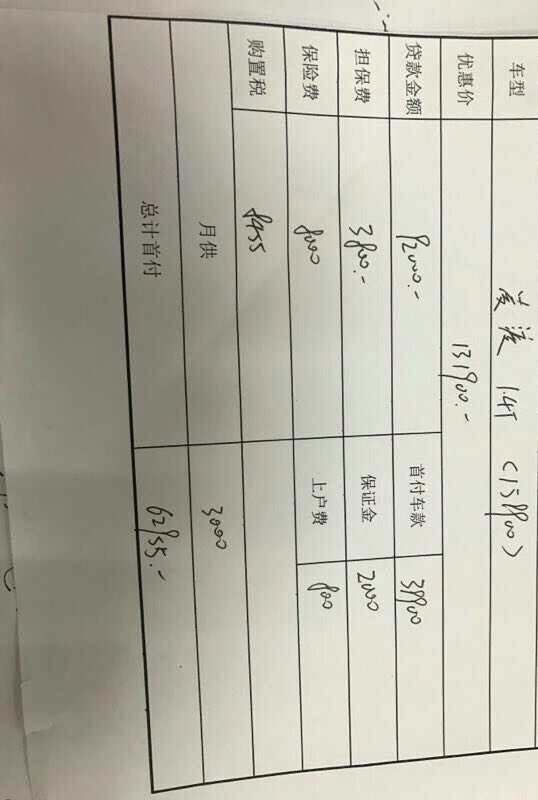 车型 凌渡 1.4T
优惠价 131900.-
贷款金额 92000.- 首付车款 39900
担保费 3800.- 保证金 2000
保险费 8000 上户费 800
购置税 8455
月供 3000
总计首付 62955.-